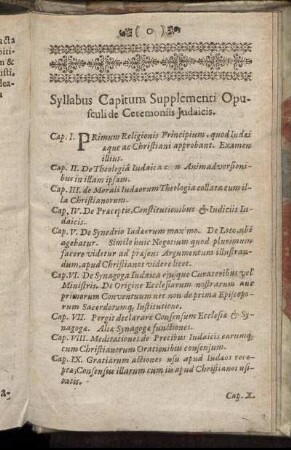 ( o )
Syllabus Capitum Supplementi Opu-
sculi de Ceremoniis Judaicis.
Cap. I. PRimum Religionis Principium, quod Iudæi
æque ac Christiani approbant. Examen
illius.
Cap. II. De Theologiâ Iudaica Animadversioni-
bus in illam ipsam.
Cap. III. de Morali Iudæorum Theologia collata cum il-
la Christianorum.
Cap. IV. De Præceptis, Constitutionibus & Iudiciis Iu-
daicis.
Cap. V. De Synedrio Iudæorum maximo. De Loco, ubi
agebatur. Simile huic Negotium quod plurimum
facere videtur ad præsens Argumentum illustran-
dum, apud Christianos videre licet.
Cap. VI. De Synagoga Iudaica ejusque Curatoribus vel
Ministris. De Origine Ecclesiarum nostrarum aut
primorum Conventuum nec non de prima Episcopo-
rum Sacerdotumq; Institutione.
Cap. VII. Pergit declarare Consensum Ecclesiæ & Sy-
nagogæ. Aliæ Synagogæ functiones.
Cap. VIII. Meditationes de Precibus Iudaicis earumq;
cum Christianorum Orationibus consensum.
Cap. IX. Gratiarum actiones usu apud Iudæos rece-
ptæ; Consensus illarum cum iis apud Christianos usi-
tatis.
Cap. X.
acta
piti-
m &
isti,
dea-
a-